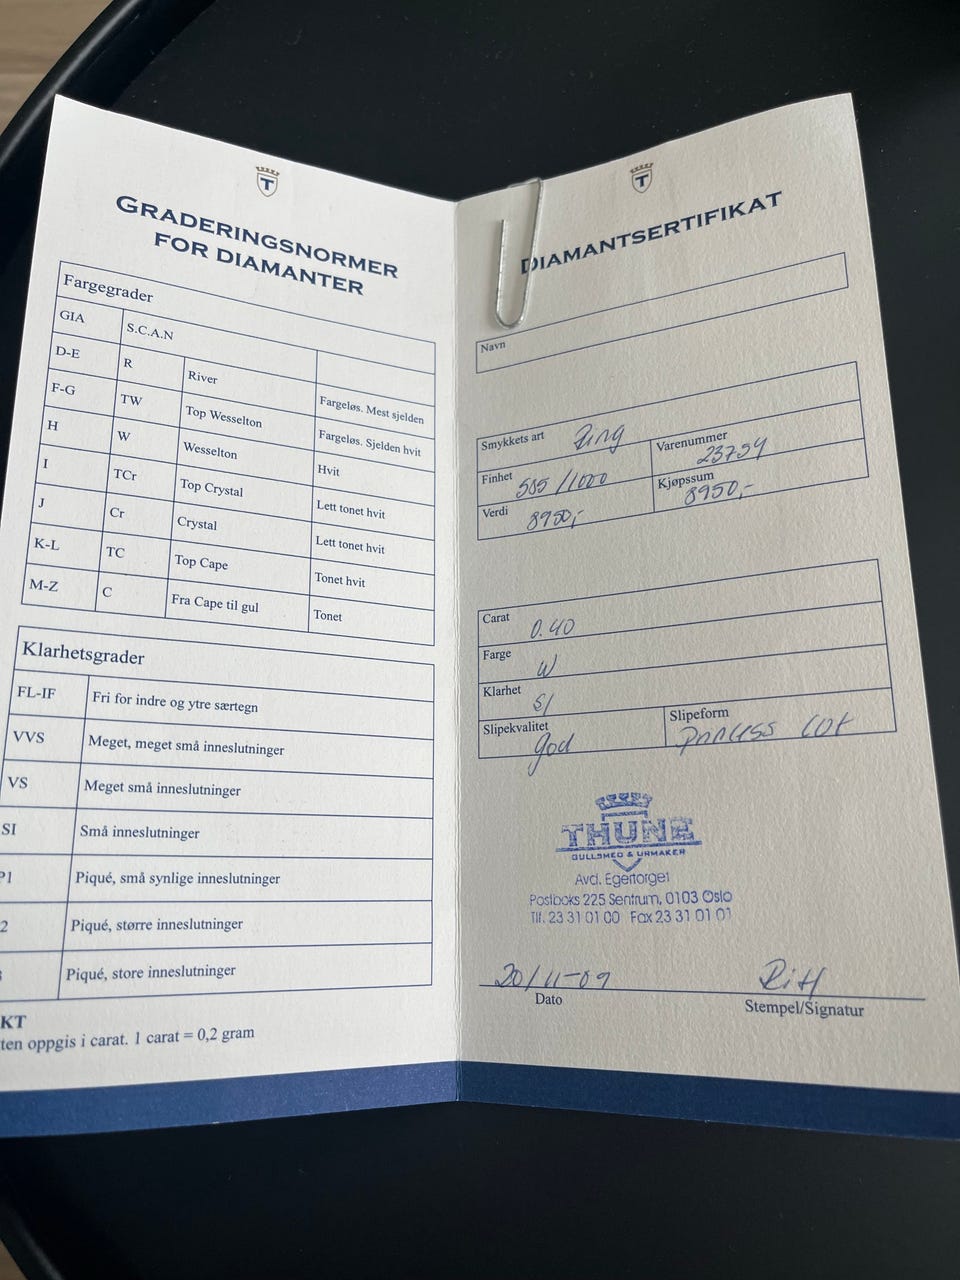 T
GRADERINGSNORMER
FOR DIAMANTER
Fargegrader
GIA S.C.A.N
D-E R River Fargeløs. Mest sjelden
F-G TW Top Wesselton Fargeløs. Sjelden hvit
H W Wesselton Hvit
I TCr Top Crystal Lett tonet hvit
J Cr Crystal Lett tonet hvit
K-L TC Top Cape Tonet hvit
M-Z C Fra Cape til gul Tonet
Klarhetsgrader
FL-IF Fri for indre og ytre særtegn
VVS Meget, meget små inneslutninger
VS Meget små inneslutninger
SI Små inneslutninger
P1 Piqué, små synlige inneslutninger
2 Piqué, større inneslutninger
Piqué, store inneslutninger
KT
ten oppgis i carat. 1 carat = 0,2 gram
T
DIAMANTSERTIFIKAT
Navn
Smykkets art Ring
Finhet 585/1000 Varenummer 23754
Verdi 8950,- Kjøpssum 8950,-
Carat 0.40
Farge W
Klarhet SI
Slipekvalitet god Slipeform Princess cut
THUNE
GULLSMED & URMAKER
Avd. Egertorget
Postboks 225 Sentrum, 0103 Oslo
Tlf. 23 31 01 00 Fax 23 31 01 01
20/11-09
Dato Stempel/Signatur